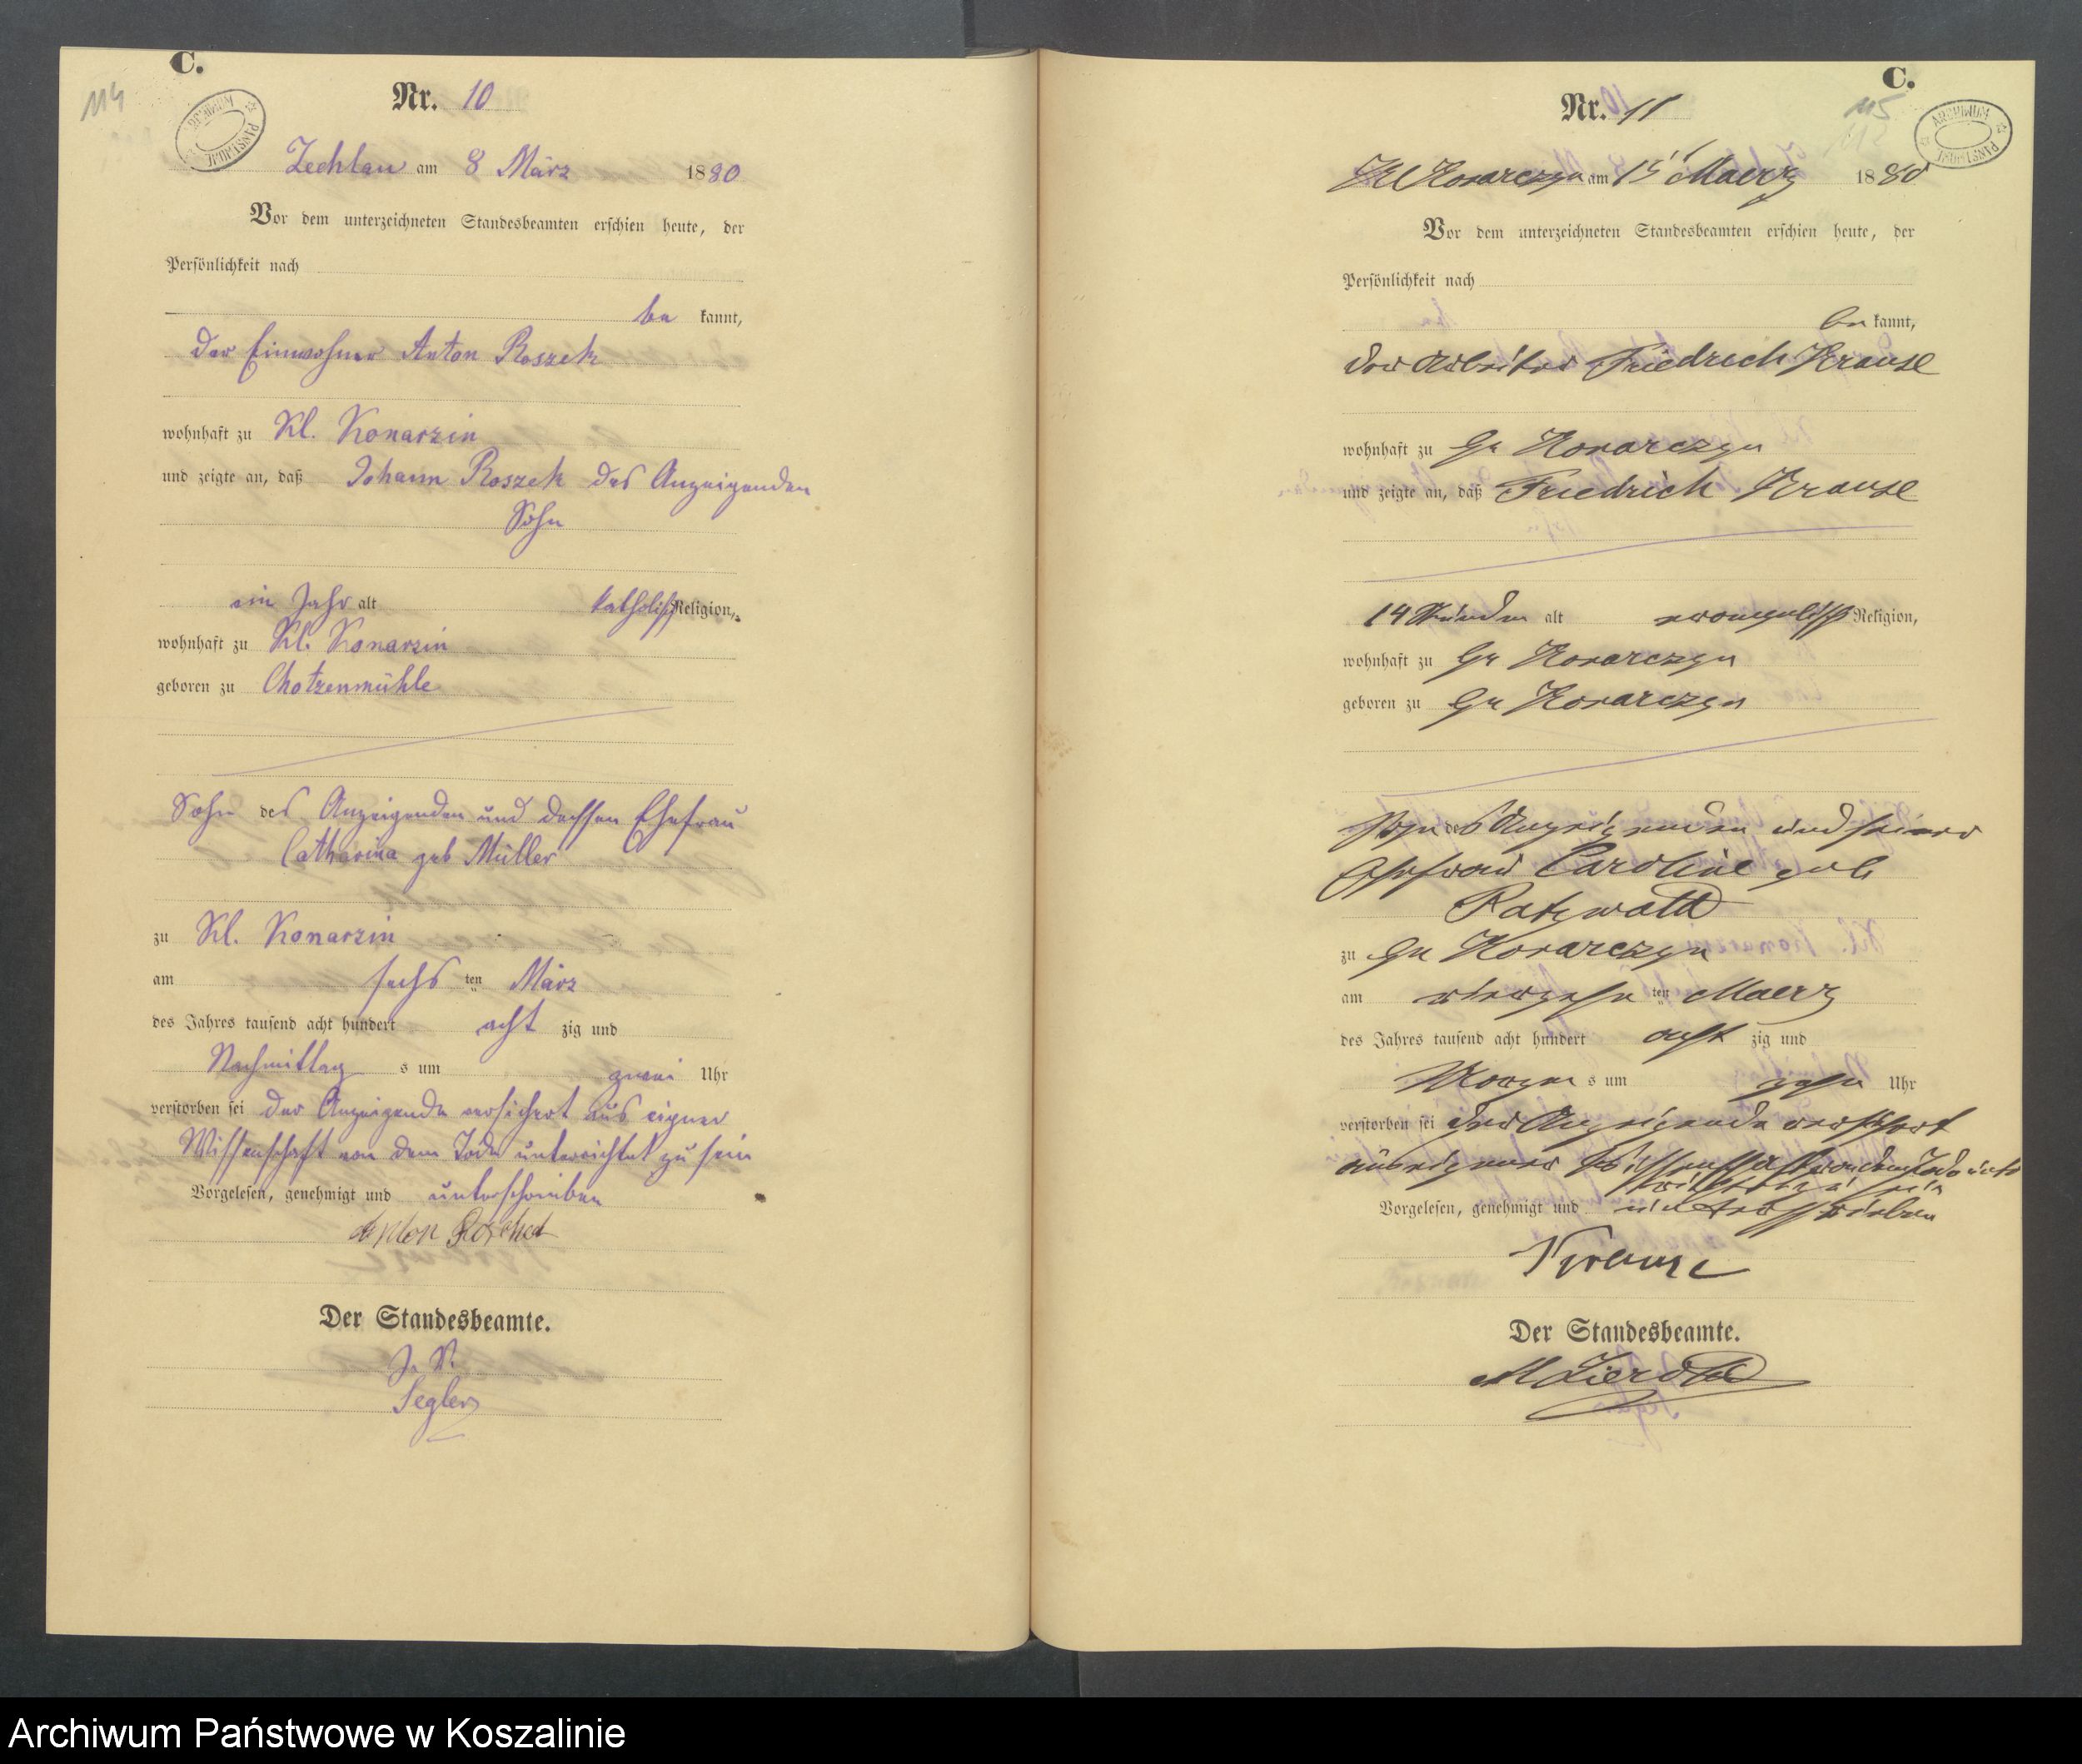 C.
114
ARCHIWUM PAŃSTWOWE
Nr. 10
Zechlau am 8 März 1880
Vor dem unterzeichneten Standesbeamten erschien heute, der
Persönlichkeit nach
be kannt,
der Einwohner Anton Roszek
wohnhaft zu Kl. Konarzin
und zeigte an, daß Johann Roszek des Anzeigenden
Sohn
ein Jahr alt katholisch Religion,
wohnhaft zu Kl. Konarzin
geboren zu Chotzenmühle
Sohn des Anzeigenden und dessen Ehefrau
Catharina geb Müller
zu Kl. Konarzin
am sechs ten März
des Jahres tausend acht hundert acht zig und
Nachmittag s um zwei Uhr
verstorben sei der Anzeigende versichert aus eigner
Wissenschaft von dem Tode unterrichtet zu sein
Vorgelesen, genehmigt und unterschrieben
Anton
Der Standesbeamte.
J. V.
Segler
C.
115
112
ARCHIWUM PAŃSTWOWE
Nr. 11
Kl Konarczyn am 15 Maerz 1880
Vor dem unterzeichneten Standesbeamten erschien heute, der
Persönlichkeit nach
be kannt,
der Arbeiter Friedrich Krause
wohnhaft zu Gr Konarczyn
und zeigte an, daß Friedrich Krause
14 Stunden alt evangelisch Religion,
wohnhaft zu Gr Konarczyn
geboren zu Gr Konarczyn
Sohn des Anzeigenden und seiner
Ehefrau Caroline geb
Ratzwald
zu Gr Konarczyn
am vierzehn ten Maerz
des Jahres tausend acht hundert acht zig und
Morgen s um zehn Uhr
verstorben sei der Anzeigende versichert
aus eigener Wissenschaft von dem Tode unter
richtet zu sein
Vorgelesen, genehmigt und unterschrieben
Krause
Der Standesbeamte.
Archiwum Państwowe w Koszalinie